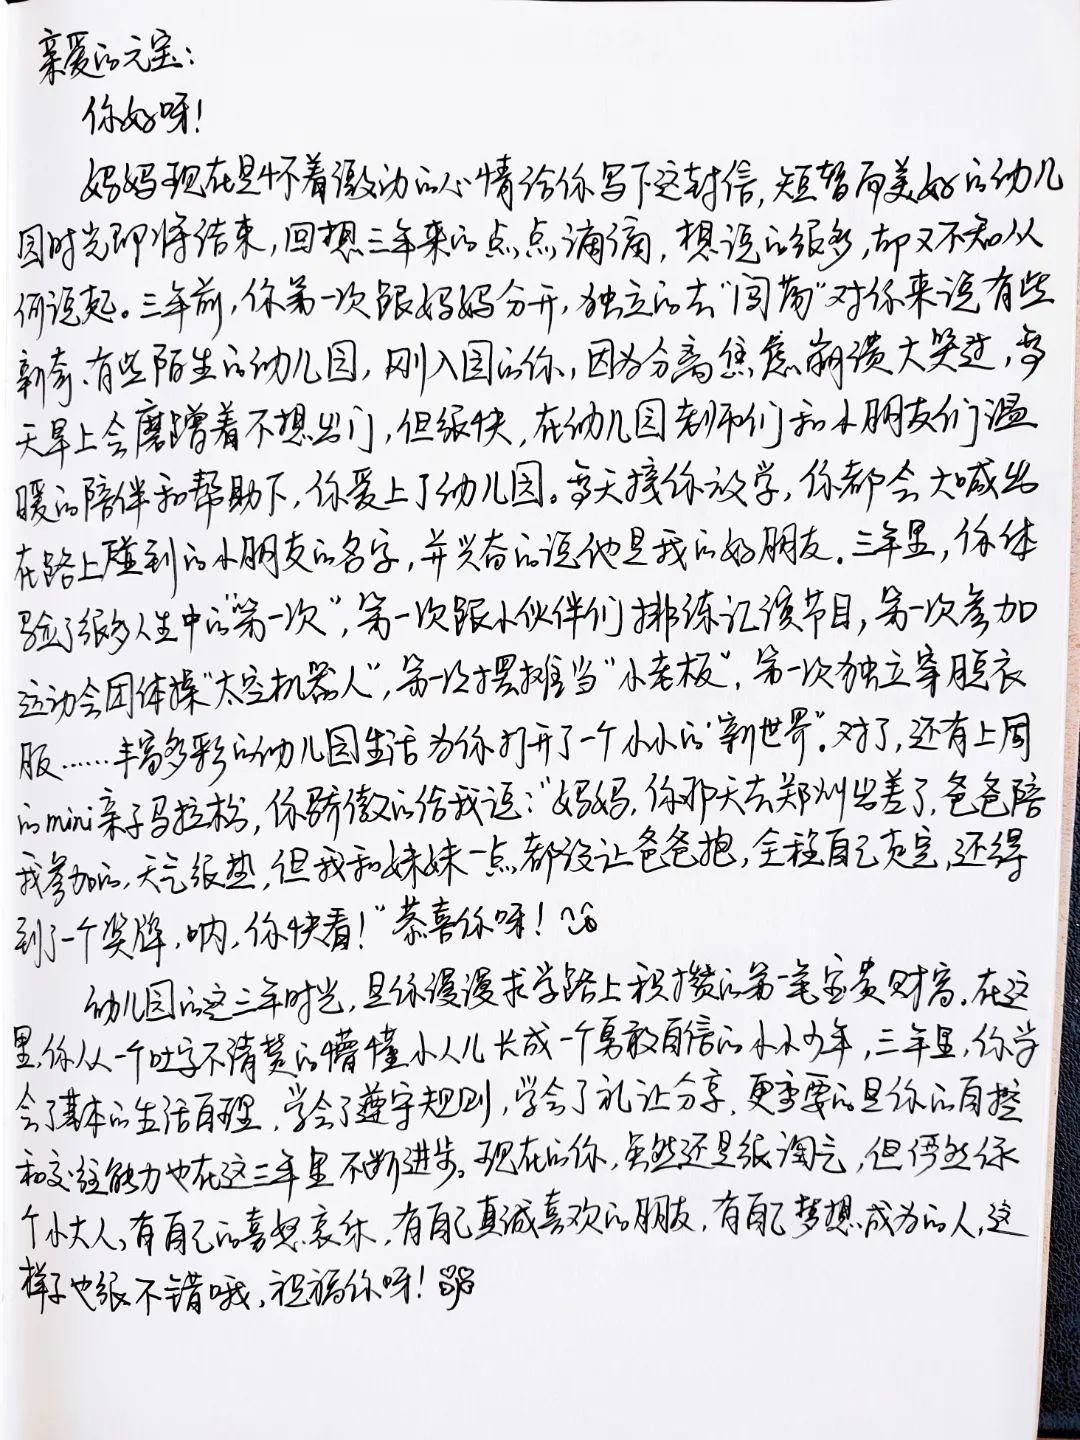 亲爱的元宝：
你好呀！
妈妈现在是怀着激动的心情给你写下这封信，短暂而美好的幼儿
园时光即将结束，回想三年来的点点滴滴，想说的很多，却又不知从
何说起。三年前，你第一次跟妈妈分开，独立的去“闯荡”对你来说有些
新奇、有些陌生的幼儿园，刚入园的你，因为分离焦虑崩溃大哭过，每
天早上会磨蹭着不想出门，但很快，在幼儿园老师们和小朋友们温
暖的陪伴和帮助下，你爱上了幼儿园。每天接你放学，你都会大喊出
在路上碰到的小朋友的名字，并兴奋的说他是我的好朋友。三年里，你体
验了很多人生中的“第一次”，第一次跟小伙伴们排练汇演节目，第一次参加
运动会团体操“太空机器人”，第一次摆摊当“小老板”，第一次独立穿脱衣
服……丰富多彩的幼儿园生活为你打开了一个小小的“新世界”。对了，还有上周
的mini亲子马拉松，你骄傲的给我说：“妈妈，你那天去郑州出差了，爸爸陪
我参加的，天气很热，但我和妹妹一点都没让爸爸抱，全程自己走完，还得
到了一个奖牌，呐，你快看！”恭喜你呀！
幼儿园的这三年时光，是你漫漫求学路上积攒的第一笔宝贵财富。在这
里，你从一个吐字不清楚的懵懂小人儿长成一个勇敢自信的小小少年，三年里，你学
会了基本的生活自理，学会了遵守规则，学会了礼让分享，更重要的是你的自控
和交往能力也在这三年里不断进步。现在的你，虽然还是很淘气，但俨然像
个小大人，有自己的喜怒哀乐，有自己真诚喜欢的朋友，有自己梦想成为的人，这
样子也很不错哦，祝福你呀！